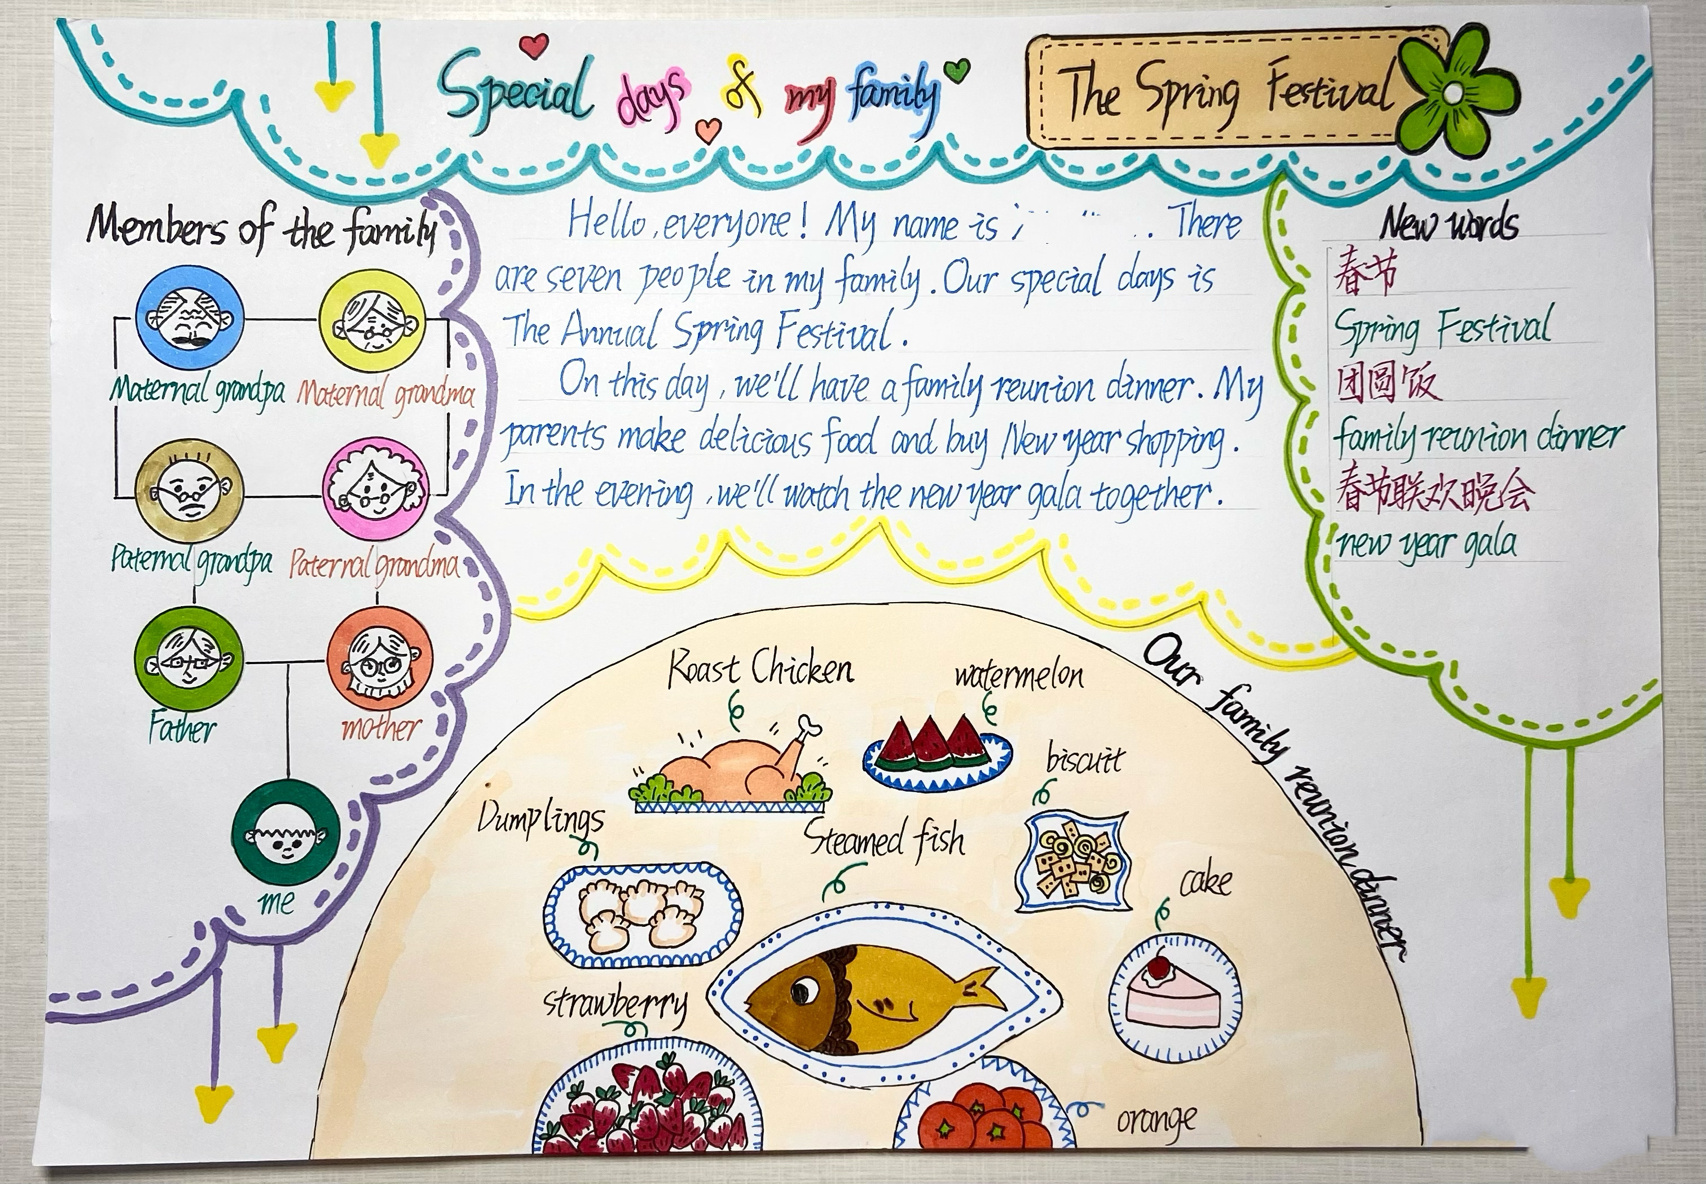 Special days of my family
The Spring Festival
Members of the family
Maternal grandpa Maternal grandma
Paternal grandpa Paternal grandma
Father mother
me
Hello, everyone! My name is . There
are seven people in my family. Our special days is
The Annual Spring Festival.
On this day, we'll have a family reunion dinner. My
parents make delicious food and buy New year shopping.
In the evening, we'll watch the new year gala together.
New words
春节
Spring Festival
团圆饭
family reunion dinner
春节联欢晚会
new year gala
Our family reunion dinner
Roast Chicken
watermelon
biscuit
Dumplings
Steamed fish
cake
strawberry
orange